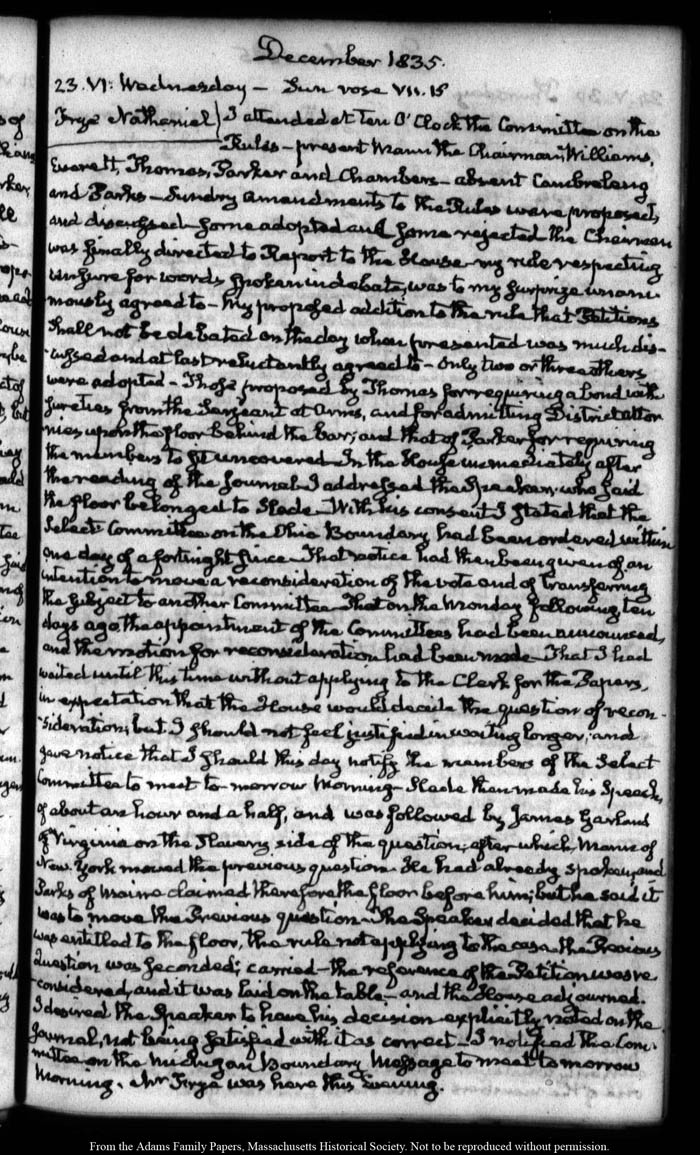 December 1835.
23. VI: Wednesday — Sun rose VII.15
Frye Nathaniel I attended at Ten O'Clock the Committee on the
Rules — present Mann the Chairman, Williams,
Everett, Thomas, Parker and Chambers — absent Cambreleng
and Parks — Sundry amendments to the Rules were proposed,
and discussed — some adopted and some rejected the Chairman
was finally directed to Report to the House — my rule respecting
censure for words spoken in debate, was to my surprize unani-
mously agreed to — My proposed addition to the rule that Petitions
shall not be debated on the day when presented was much dis-
cussed and at last reluctantly agreed to — only two or three others
were adopted — Those proposed by Thomas for requiring a bond with
sureties from the Serjeant at Arms, and for admitting District attor
nies upon the floor behind the bar; and that of Parker for requiring
the members to sit uncovered — In the House immediately after
the reading of the Journal I addressed the Speaker, who said
the floor belonged to Slade — With his consent I stated that the
Select Committee on the Ohio Boundary had been ordered within
one day of a fortnight since — That notice had then been given of an
intention to move a reconsideration of the vote and of transferring
the subject to another Committee — That on the Monday following, ten
days ago the appointment of the Committees had been announced,
and the motion for reconsideration had been made — That I had
waited until this time without applying to the Clerk for the Papers,
in expectation that the House would decide the question of recon-
sideration; but I should not feel justified in waiting longer; and
gave notice that I should this day notify the members of the Select
Committee to meet to-morrow Morning — Slade then made his Speech,
of about an hour and a half, and was followed by James Garland
of Virginia on the slavery side of the question; after which, Mann of
New-York moved the previous question — He had already spoken, and
Parks of Maine claimed therefore the floor before him; but he said it
was to move the Previous question — The Speaker decided that he
was entitled to the floor, the rule not applying to the case — the Previous
Question was seconded; carried — the reference of the Petition was re
considered, and it was laid on the table — and the House adjourned.
I desired the Speaker to have his decision explicitly noted on the
Journal, not being satisfied with it as correct — I notified the Com-
mittee on the Michigan Boundary Message to meet to morrow
Morning. Mr Frye was here this Evening.
From the Adams Family Papers, Massachusetts Historical Society. Not to be reproduced without permission.